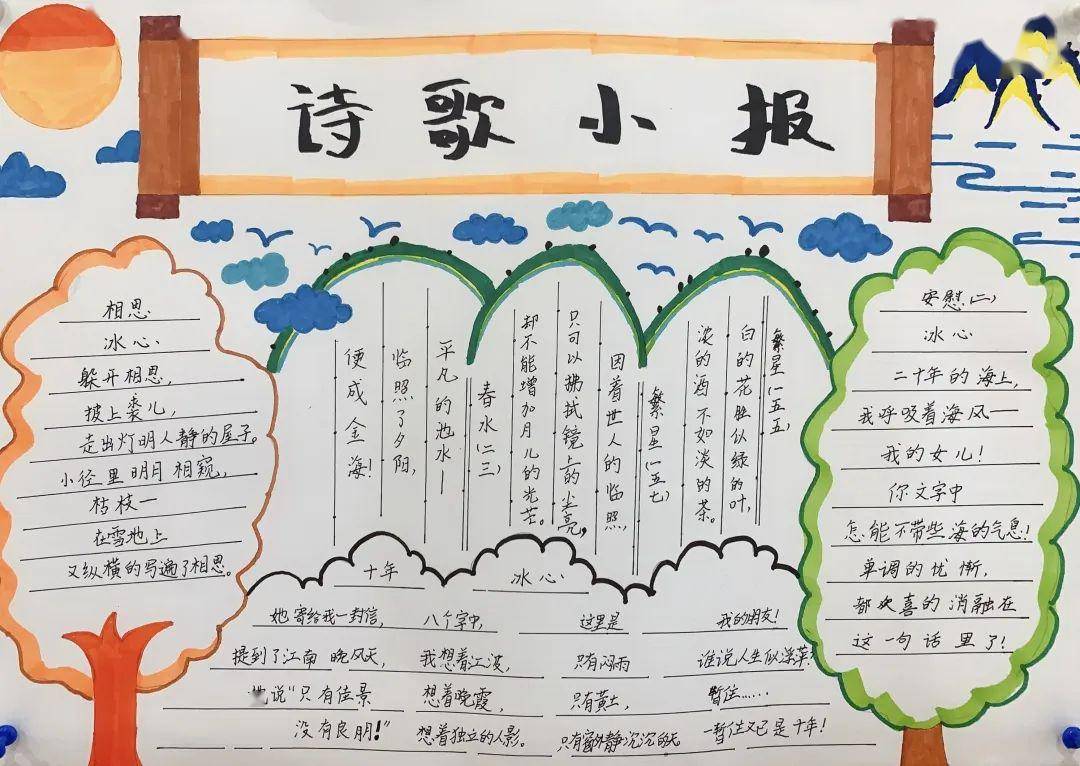 诗歌小报
相思
冰心
躲开相思,
披上裘儿,
走出灯明人静的屋子。
小径里明月相窥,
枯枝—
在雪地上
又纵横的写遍了相思。
繁星(一五五)
白的花胜似绿的叶,
浓的酒不如淡的茶。
繁星(一五七)
因着世人的临照
只可以拂拭镜上的尘亮,
却不能增加月儿的光芒。
春水(二三)
平凡的池水—
临照了夕阳,
便成金海!
安慰(二)
冰心
二十年的海上,
我呼吸着海风—
我的女儿!
你文字中
怎能不带些海的气息!
单调的忧惭,
都欢喜的消融在
这一句话里了!
十年
冰心
她寄给我一封信,
提到了江南晚风天,
她说"只有佳景
没有良朋!"
八个字中,
我想着江波,
想着晚霞,
想着独立的人影。
这里是
只有闷雨
只有黄土,
只有窗外静沉沉的天
我的朋友!
谁说人生似浮萍?
暂住……
一暂住又已是十年!